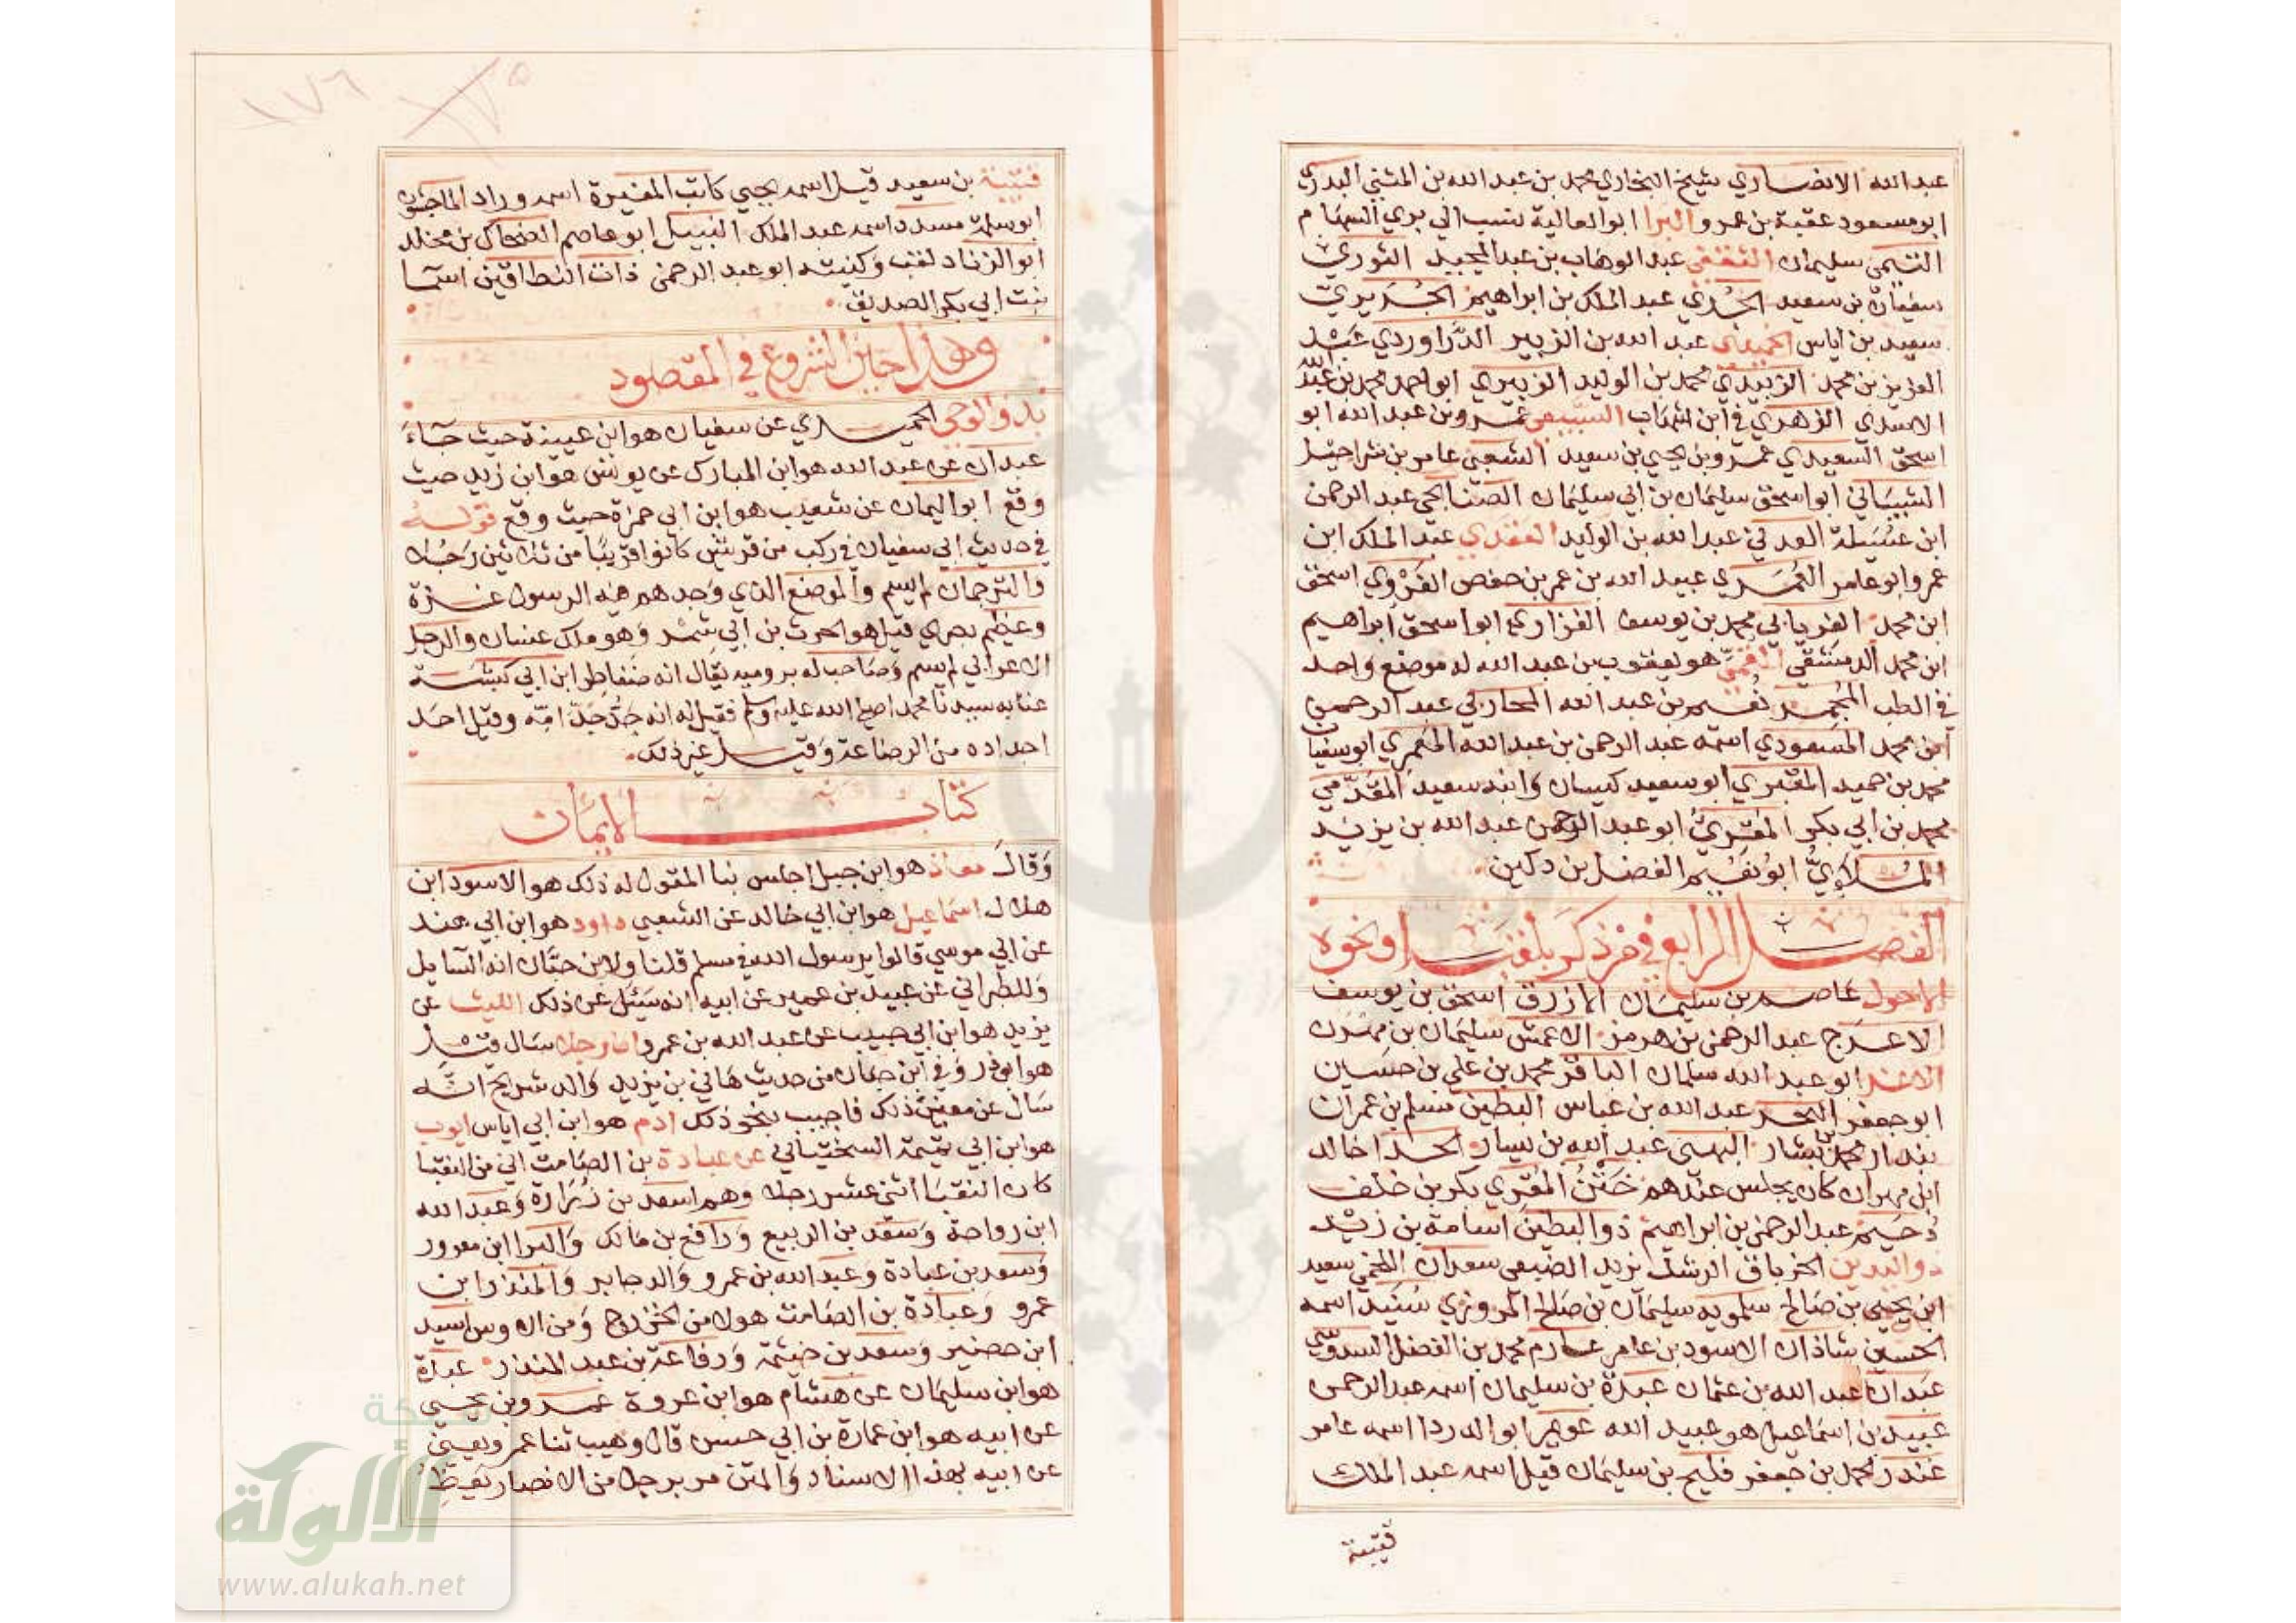 عبد الله الانصاري شيخ البخاري محمد بن عبد الله بن المثني البدري
ابو مسعود عقبة بن عمرو البرا ابو العالية نسب الي بري السهام
التيمي سليمان الثقفي عبد الوهاب بن عبد المجيد الثوري
سفيان بن سعيد الجدي عبد الملك بن ابراهيم الجريري
سعيد بن اياس الحميدي عبد الله بن الزبير الدراوردي عبد
العزيز بن محمد الزبيدي محمد بن الوليد الزبيري ابو احمد محمد بن عبد الله
الاسدي الزهري في ابن شهاب السبيعي عمرو بن عبد الله ابو
اسحق السعيدي عمرو بن يحيي بن سعيد الشعبي عامر بن شراحيل
الشيباني ابو اسحق سليمان بن ابي سليمان الصنابحي عبد الرحمن
ابن عسيلة العدني عبد الله بن الوليد العقدي عبد الملك ابن
عمرو ابو عامر العمري عبيد الله بن عمر بن حفص الفروي اسحق
ابن محمد الفريابي محمد بن يوسف الفزاري ابو اسحق ابراهيم
ابن محمد الدمشقي القمي هو يعقوب بن عبد الله له موضع واحد
في الطب المجمر نعيم بن عبد الله المحاربي عبد الرحمن
ابن محمد المسعودي اسمه عبد الرحمن بن عبد الله المعمري ابو سفيان
محمد بن حميد المقبري ابو سعيد كيسان وابنه سعيد المقدمي
محمد بن ابي بكر المقري ابو عبد الرحمن عبد الله بن يزيد
الملائي ابو نعيم الفضل بن دكين
الفصل الرابع في من ذكر بلقب او نحوه
الاحول عاصم بن سليمان الازرق اسحق بن يوسف
الاعرج عبد الرحمن بن هرمز الاعمش سليمان بن مهران
الاغر ابو عبد الله سلمان الباقر محمد بن علي بن حسين
ابو جعفر البحر عبد الله بن عباس البطين مسلم بن عمران
بندار محمد بن بشار البهي عبد الله بن يسار الحذا خالد
ابن مهران كان يجلس عندهم ختن المقري بكر بن خلف
دحيم عبد الرحمن بن ابراهيم ذو البطين اسامة بن زيد
ذو اليدين الخرباق الرشك يزيد الضبعي سعدان اللخمي سعيد
ابن يحيي بن صالح سلمويه سليمان بن صالح المروزي سنيد اسمه
الحسين شاذان الاسود بن عامر عارم محمد بن الفضل السدوسي
عبدان عبد الله بن عثمان عبدة بن سليمان اسمه عبد الرحمن
عبيد بن اسماعيل هو عبيد الله عويمر ابو الدردا اسمه عامر
غندر محمد بن جعفر فليح بن سليمان قيل اسمه عبد الملك
قتيبة
١٧٦
قتيبة بن سعيد قيل اسمه يحيي كاتب المغيرة اسمه وراد الماجشون
ابو سلمة مسدد اسمه عبد الملك النبيل ابو عاصم الضحاك بن مخلد
ابو الزناد لقب وكنيته ابو عبد الرحمن ذات النطاقين اسما
بنت ابي بكر الصديق
وهذا حين الشروع في المقصود
بدو الوحي الحميدي عن سفيان هو ابن عيينة حيث جاء
عبدان عن عبد الله هو ابن المبارك عن يونس هو ابن زيد حيث
وقع ابو اليمان عن شعيب هو ابن ابي حمزة حيث وقع قوله
في حديث ابي سفيان في ركب من قريش كانوا قريبا من ثلاثين رجلا
والترجمان لم يسم والموضع الذي وجدهم فيه الرسول غزة
وعظيم بصري قيل هو الحرث بن ابي شمر وهو ملك غسان والرجل
الاعرابي لم يسم وصاحب له برومية يقال انه ضغاطر ابن ابي كبشة
عنا به سيدنا محمد اصلي الله عليه وسلم فقيل له انه جد جد امه وقيل احد
اجداده من الرضاعة وقيل غير ذلك
كتاب الايمان
وقال معاذ هو ابن جبل اجلس بنا المقول له ذلك هو الاسود ابن
هلال اسماعيل هو ابن ابي خالد عن الشعبي داود هو ابن ابي هند
عن ابي موسي قالوا يرسول الله في مسلم قلنا ولابن حبان انه السايل
وللطبراني عن عبيد بن عمير عن ابيه انه سئل عن ذلك الليث عن
يزيد هو ابن ابي حبيب عن عبد الله بن عمرو ان رجلا سال قيل
هو ابو ذر وفي ابن حبان من حديث هاني بن يزيد والد شريح انه
سال عن معني ذلك فاجيب بنحو ذلك ادم هو ابن ابي اياس ايوب
هو ابن ابي تميمة السختياني عن عبادة بن الصامت اني من النقبا
كان النقبا اثني عشر رجلا وهم اسعد بن زرارة وعبد الله
ابن رواحة وسعد بن الربيع ورافع بن مالك والبرا ابن معرور
وسعد بن عبادة وعبد الله بن عمرو والد جابر والمنذر ابن
عمرو وعبادة بن الصامت هولا من الخزرج ومن الاوس اسيد
ابن حضير وسعد بن خيثمة ورفاعة بن عبد المنذر عبدة
هو ابن سليمان عن هشام هو ابن عروة عمرو بن يحيي
عن ابيه هو ابن عمارة بن ابي حسن قال وهيب ثنا عمر ويعني
عن ابيه بهذا الاسناد والمتن مر برجل من الانصار يعظ
شبكة
الألوكة
www.alukah.net